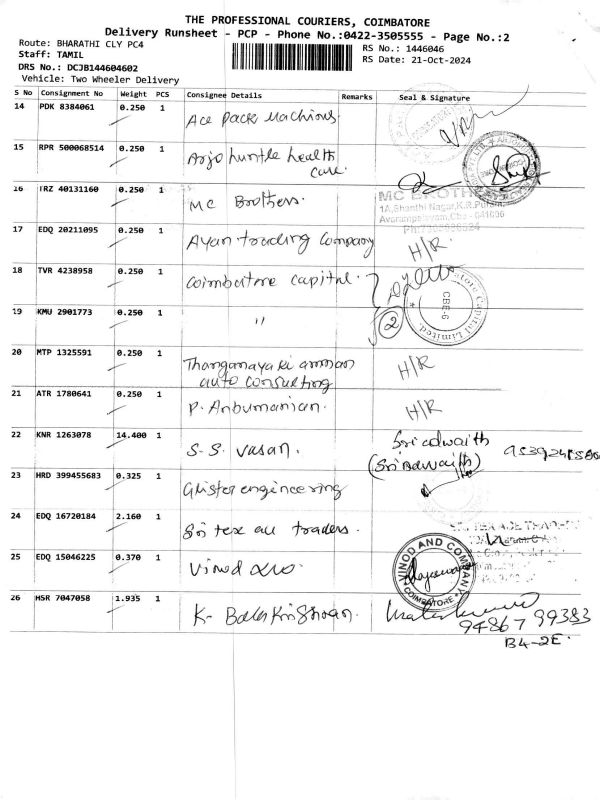 THE PROFESSIONAL COURIERS, COIMBATORE
Delivery Runsheet - PCP - Phone No.:0422-3505555 - Page No.:2
Route: BHARATHI CLY PC4
RS No.: 1446046
Staff: TAMIL
RS Date: 21-Oct-2024
DRS No.: DCJB144604602
Vehicle: Two Wheeler Delivery
S No Consignment No Weight PCS Consignee Details Remarks Seal & Signature
14 PDK 8384061 0.250 1
Ace Pack Machines
15 RPR 500068514 0.250 1
Arjo huntle health
care.
16 TRZ 40131160 0.250 1
MC Brothers.
MC BROTHERS
1A,Shanthi Nagar,K.R.Puram
Avarampalayam,Cbe - 641006
17 EDQ 20211095 0.250 1
Ayan trading Company H/R.
18 TVR 4238958 0.250 1
Coimbatore capital.
Coimbatore Capital Limited.
CBE-6
19 KMU 2901773 0.250 1
" 2
20 MTP 1325591 0.250 1
Thanganayaki amman H/R
auto consulting
21 ATR 1780641 0.250 1
P. Anbumanian. H/R
22 KNR 1263078 14.400 1
S.S. Vasan. Sri adwaith
(Sri Adwaith)
23 HRD 399455683 0.325 1
Glister engineering
24 EDQ 16720184 2.160 1
Sri tex ace traders.
25 EDQ 15046225 0.370 1
Vinod &co
VINOD AND COMPANY
COIMBATORE
26 HSR 7047058 1.935 1
K- Balakrishnan.
94867 99383
B4-2E.